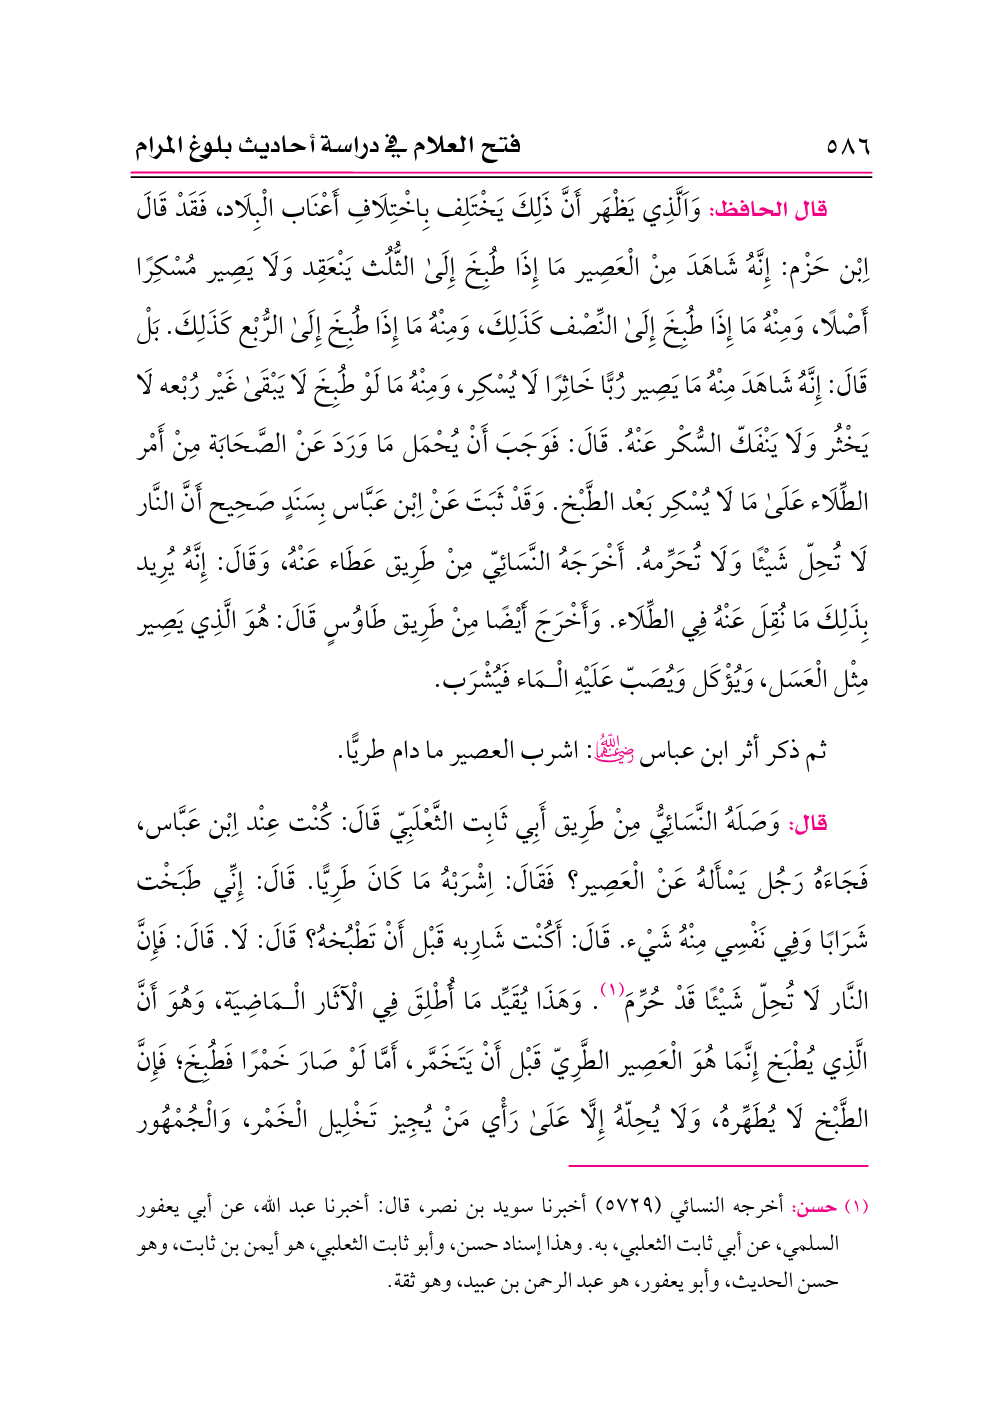 ٥٨٦ فتح العلام في دراسة أحاديث بلوغ المرام
قال الحافظ: وَاَلَّذِي يَظْهَر أَنَّ ذَلِكَ يَخْتَلِف بِاخْتِلَافِ أَعْنَاب الْبِلَاد، فَقَدْ قَالَ
اِبْن حَزْم: إِنَّهُ شَاهَدَ مِنْ الْعَصِير مَا إِذَا طُبِخَ إِلَىٰ الثُّلُث يَنْعَقِد وَلَا يَصِير مُسْكِرًا
أَصْلًا، وَمِنْهُ مَا إِذَا طُبِخَ إِلَىٰ النِّصْف كَذَلِكَ، وَمِنْهُ مَا إِذَا طُبِخَ إِلَىٰ الرُّبْع كَذَلِكَ. بَلْ
قَالَ: إِنَّهُ شَاهَدَ مِنْهُ مَا يَصِير رُبًّا خَاثِرًا لَا يُسْكِر، وَمِنْهُ مَا لَوْ طُبِخَ لَا يَبْقَىٰ غَيْر رُبْعه لَا
يَخْثُر وَلَا يَنْفَكّ السُّكْر عَنْهُ. قَالَ: فَوَجَبَ أَنْ يُحْمَل مَا وَرَدَ عَنْ الصَّحَابَة مِنْ أَمْر
الطِّلَاء عَلَىٰ مَا لَا يُسْكِر بَعْد الطَّبْخ. وَقَدْ ثَبَتَ عَنْ اِبْن عَبَّاس بِسَنَدٍ صَحِيح أَنَّ النَّار
لَا تُحِلّ شَيْئًا وَلَا تُحَرِّمهُ. أَخْرَجَهُ النَّسَائِيّ مِنْ طَرِيق عَطَاء عَنْهُ، وَقَالَ: إِنَّهُ يُرِيد
بِذَلِكَ مَا نُقِلَ عَنْهُ فِي الطِّلَاء. وَأَخْرَجَ أَيْضًا مِنْ طَرِيق طَاوُسٍ قَالَ: هُوَ الَّذِي يَصِير
مِثْل الْعَسَل، وَيُؤْكَل وَيُصَبّ عَلَيْهِ الْـمَاء فَيُشْرَب.
ثم ذكر أثر ابن عباس رضي الله عنهما: اشرب العصير ما دام طريًّا.
قال: وَصَلَهُ النَّسَائِيُّ مِنْ طَرِيق أَبِي ثَابِت الثَّعْلَبِيّ قَالَ: كُنْت عِنْد اِبْن عَبَّاس،
فَجَاءَهُ رَجُل يَسْأَلهُ عَنْ الْعَصِير؟ فَقَالَ: اِشْرَبْهُ مَا كَانَ طَرِيًّا. قَالَ: إِنِّي طَبَخْت
شَرَابًا وَفِي نَفْسِي مِنْهُ شَيْء. قَالَ: أَكُنْت شَارِبه قَبْل أَنْ تَطْبُخهُ؟ قَالَ: لَا. قَالَ: فَإِنَّ
النَّار لَا تُحِلّ شَيْئًا قَدْ حُرِّمَ(١). وَهَذَا يُقَيِّد مَا أُطْلِقَ فِي الْآثَار الْـمَاضِيَة، وَهُوَ أَنَّ
الَّذِي يُطْبَخ إِنَّمَا هُوَ الْعَصِير الطَّرِيّ قَبْل أَنْ يَتَخَمَّر، أَمَّا لَوْ صَارَ خَمْرًا فَطُبِخَ؛ فَإِنَّ
الطَّبْخ لَا يُطَهِّرهُ، وَلَا يُحِلّهُ إِلَّا عَلَىٰ رَأْي مَنْ يُجِيز تَخْلِيل الْخَمْر، وَالْجُمْهُور
(١) حسن: أخرجه النسائي (٥٧٢٩) أخبرنا سويد بن نصر، قال: أخبرنا عبد الله، عن أبي يعفور
السلمي، عن أبي ثابت الثعلبي، به. وهذا إسناد حسن، وأبو ثابت الثعلبي، هو أيمن بن ثابت، وهو
حسن الحديث، وأبو يعفور، هو عبد الرحمن بن عبيد، وهو ثقة.